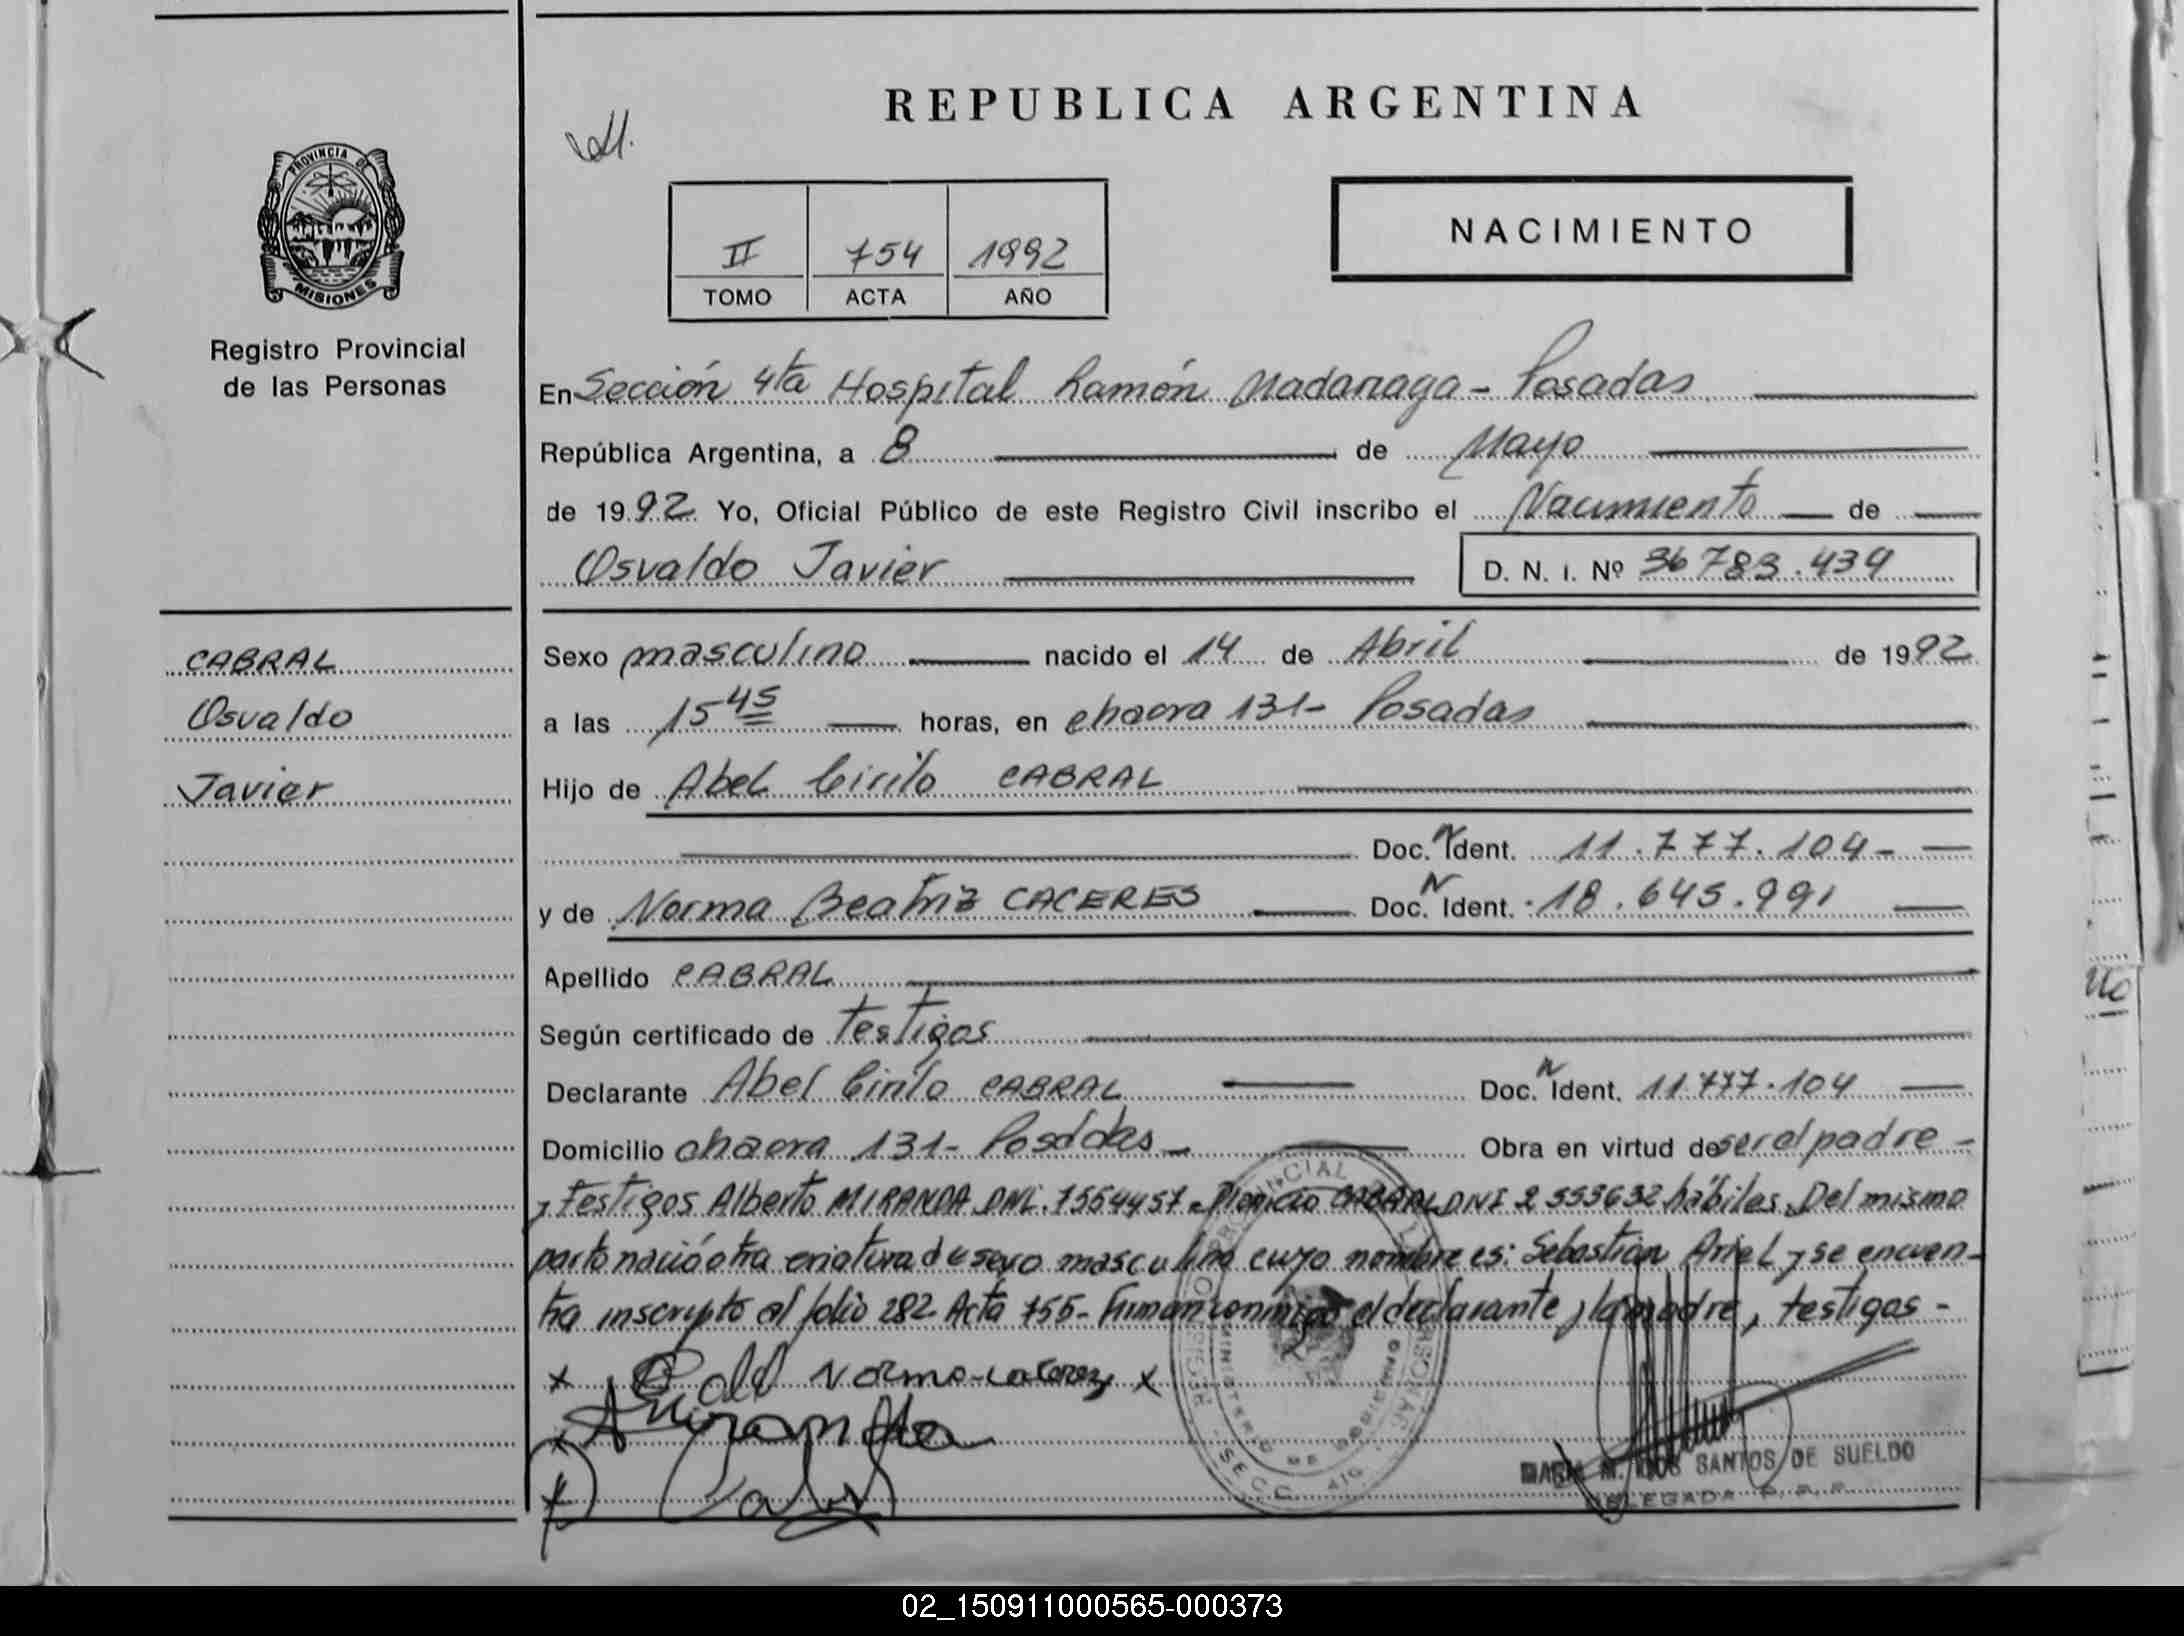 REPUBLICA ARGENTINA
PROVINCIA DE
MISIONES
Registro Provincial
de las Personas
II 754 1992
TOMO ACTA AÑO
NACIMIENTO
En Sección 4ta Hospital Ramón Madariaga - Posadas
República Argentina, a 8 de Mayo
de 1992 Yo, Oficial Público de este Registro Civil inscribo el Nacimiento de
Osvaldo Javier D. N. I. Nº 36 783.439
CABRAL
Osvaldo
Javier
Sexo masculino nacido el 14 de Abril de 1992
a las 15 45 horas, en chacra 131- Posadas
Hijo de Abel Cirilo CABRAL
Doc. N Ident. 11.777.104-
y de Norma Beatriz CACERES Doc. N Ident. 18.645.991
Apellido CABRAL
Según certificado de testigos
Declarante Abel Cirilo CABRAL Doc. N Ident. 11.777.104
Domicilio chacra 131- Posadas - Obra en virtud de ser el padre -
y testigos Alberto MIRANDA DNI. 7554457 CABRAL DNI 2 555632 hábiles. Del mismo
parto nació otra criatura de sexo masculino cuyo nombre es: Sebastián Ariel y se encuen-
tra inscripto al folio 282 Acta 755- Firman conmigo el declarante, la madre, testigos -
x Norma Caceres x
Miranda
MARIA M. DOS SANTOS DE SUELDO
DELEGADA R. P. P.
02_150911000565-000373